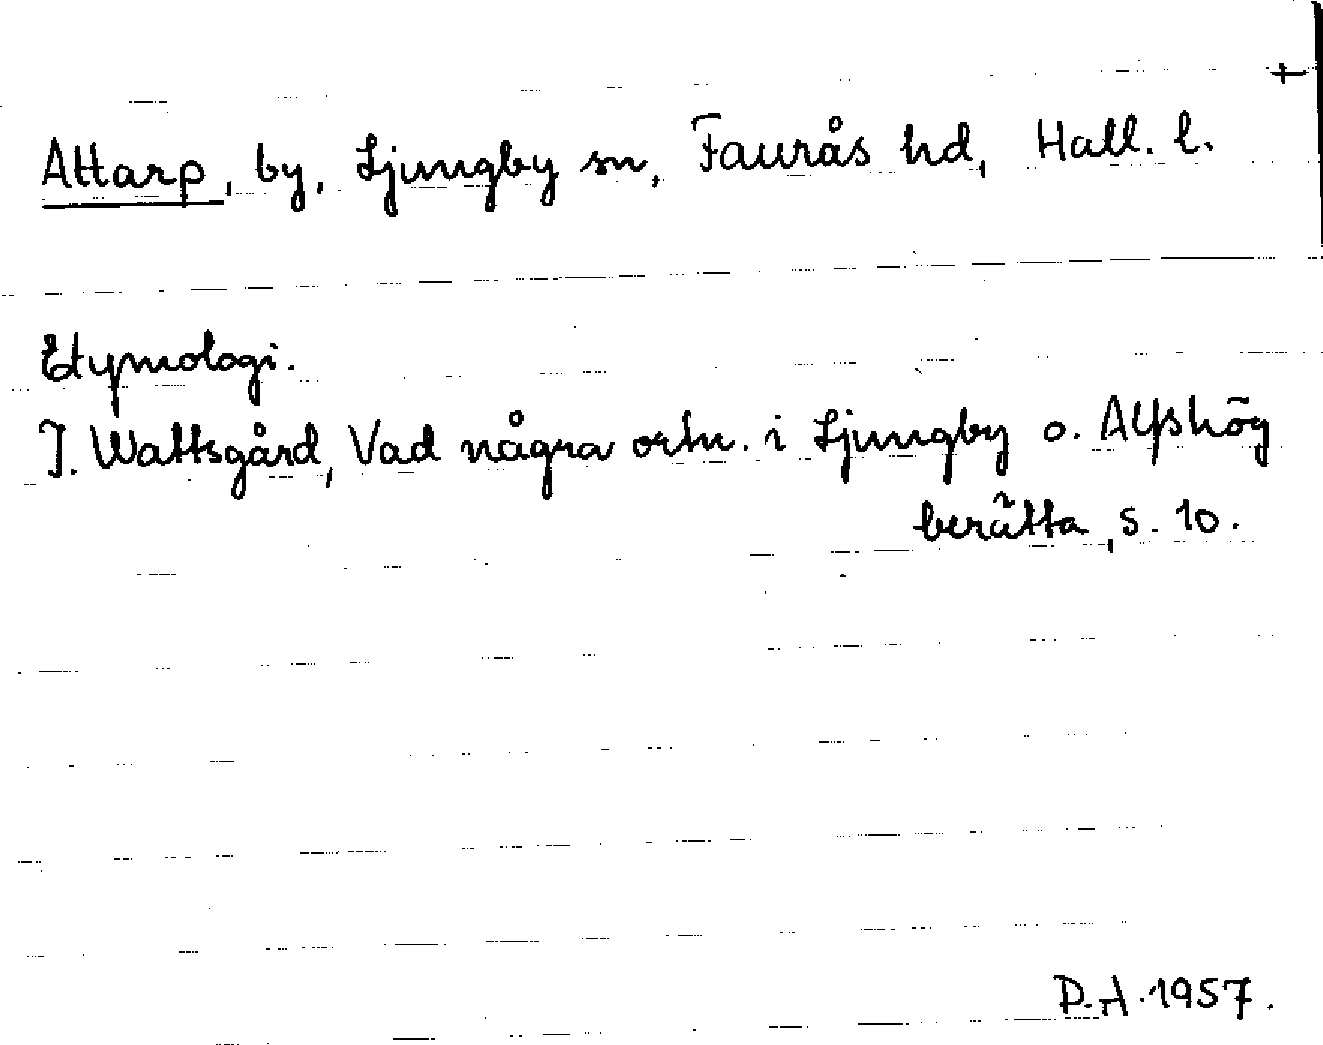 Attarp, by, Ljungby sn, Faurås hd, Hall. l.
Etymologi.
J. Wattsgård, Vad några ortn. i Ljungby o. Alfshög
berätta, s. 10.
D.A. 1957.